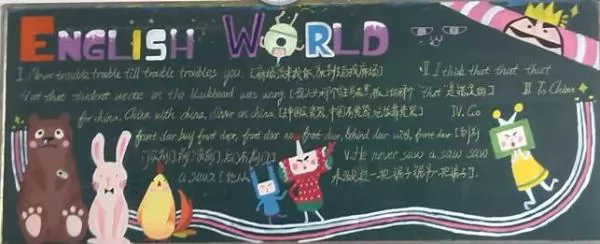 ENGLISH WORLD
I. Never trouble trouble till trouble troubles you. [麻烦没来找你, II. I think that that that
that that student wrote on the blackboard was wrong. [我认为那个学生 黑板上的那个 "that" 是错误的] III. To China
for china, China with china, dinner on china. [去中国买瓷器, 中国有瓷器, 吃饭靠瓷器]. IV. Go
front door buy front door, front door no front door, behind door with front door. [
V. He never saw a saw saw
a saw. [他从 来没见过一把锯子锯 一把锯子].